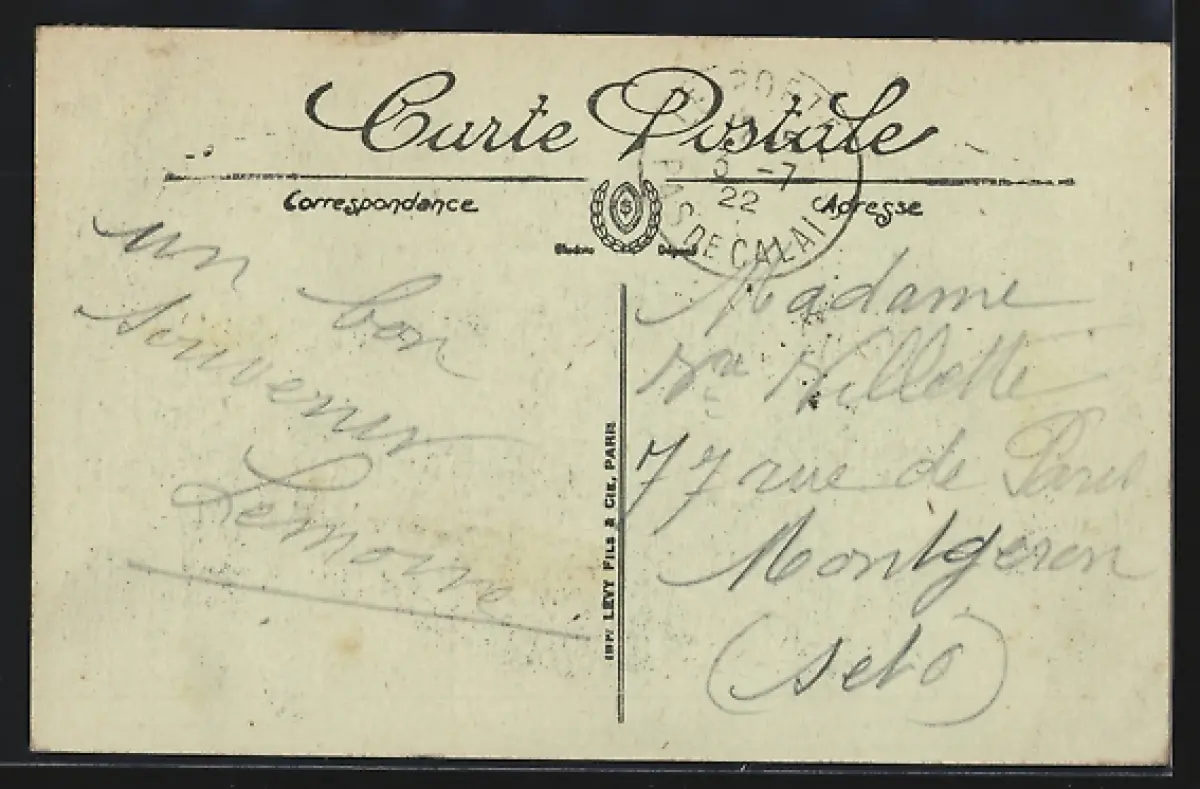 Carte Postale
Correspondance
Adresse
3 -7
22
PAS DE CALAIS
un bon
souvenir
Lemoine
IMP. LEVY FILS & CIE, PARIS
Madame
Vve Villette
77 rue de Paris
Montgeron
(S et O)